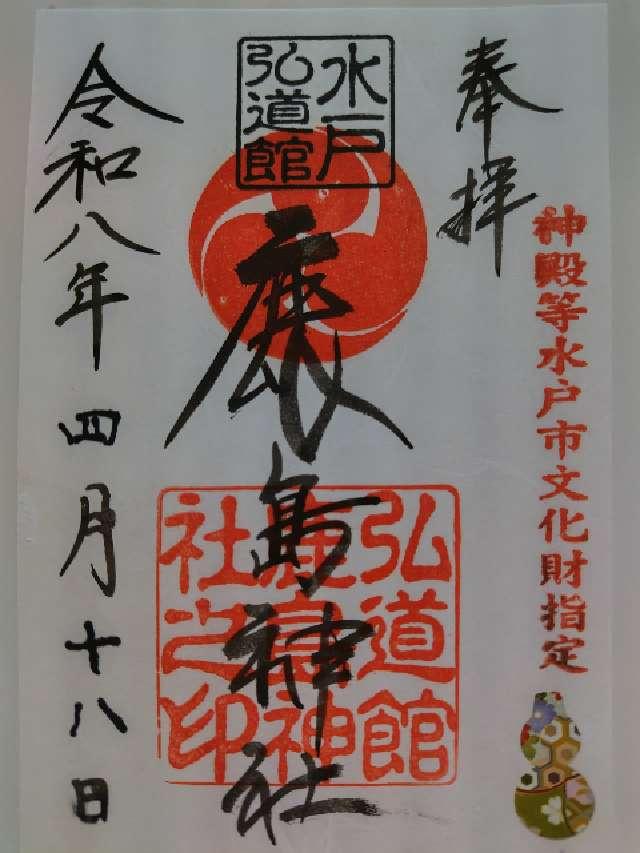 奉拝
神殿等水戸市文化財指定
水戸
弘道館
鹿島神社
弘道館
鹿島神
社之印
令和八年四月十八日